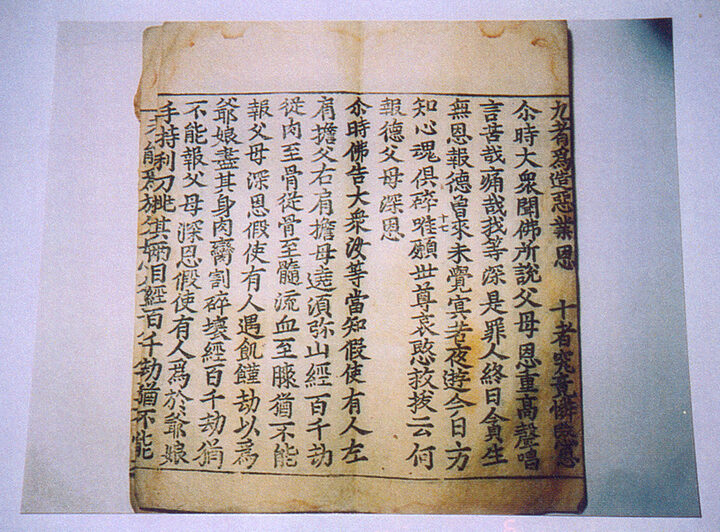 九者爲造惡業恩　十者究竟憐愍恩
尒時大衆聞佛所說父母恩重高聲唱
言苦哉痛哉我等深是罪人終日
無恩報德曽來未覺冥若夜遊今日方
十七
知心魂俱碎唯願世尊哀愍救拔云何
報德父母深恩
尒時佛告大衆汝等當知假使有人左
肩擔父右肩擔母遶須弥山經百千劫
從肉至骨從骨至髓流血至膝猶不能
報父母深恩假使有人遇飢饉劫以爲
爺娘盡其身肉臠割碎壞經百千劫猶
不能報父母深恩假使有人爲於爺娘
手持利刀其經百千劫猶不能